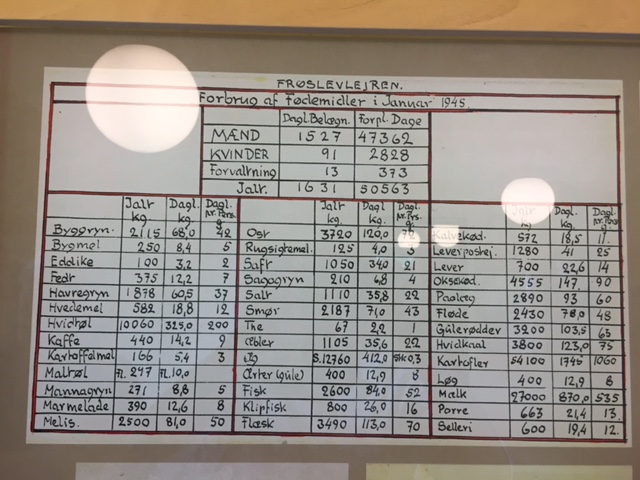 FRØSLEVLEJREN.
Forbrug af Fødemidler i Januar 1945.
Dagl. Belægn. Forpl. Dage
MÆND 1527 47362
KVINDER 91 2828
Forvaltning 13 373
Jalt. 1631 50563
Jalt kg. Dagl. kg. Dagl. pr. Pers. g.
Byggryn. 2115 68,0 42
Bygmel 250 8,4 5
Eddike 100 3,2 2
Fedt 375 12,2 7
Havregryn 1878 60,5 37
Hvedemel 582 18,8 12
Hvidtøl 10060 325,0 200
Kaffe 440 14,2 9
Kartoffelmel 166 5,4 3
Maltøl FL. 247 FL. 10,0
Mannagryn 271 8,8 5
Marmelade 390 12,6 8
Melis. 2500 81,0 50
Jalt kg. Dagl. kg. Dagl. pr. Pers. g.
Ost 3720 120,0
Rugsigtemel. 125 4,0 3
Saft 1050 34,0 21
Sagogryn 210 6,8 4
Salt 1110 35,8 22
Smør 2187 71,0 43
The 67 2,2 1
Æbler 1105 35,6 22
Æg S. 12760 412,0 Stk 0,3
Ærter (gule) 400 12,9 8
Fisk 2600 84,0 52
Klipfisk 800 26,0 16
Flæsk 3490 113,0 70
Jalt kg. Dagl. kg. Dagl. pr. Pers. g.
Kalvekød. 572 18,5 11.
Leverpostej. 1280 41 25
Lever 700 22,6 14
Oksekød. 4555 147. 90
Paalæg 2890 93 60
Fløde 2430 78,0 48
Gulerødder 3200 103,5 63
Hvidkaal 3800 123,0 75
Kartofler 54100 1745 1060
Løg 400 12,9 8
Mælk 27000 870,0 535
Porre 663 21,4 13.
Selleri 600 19,4 12.